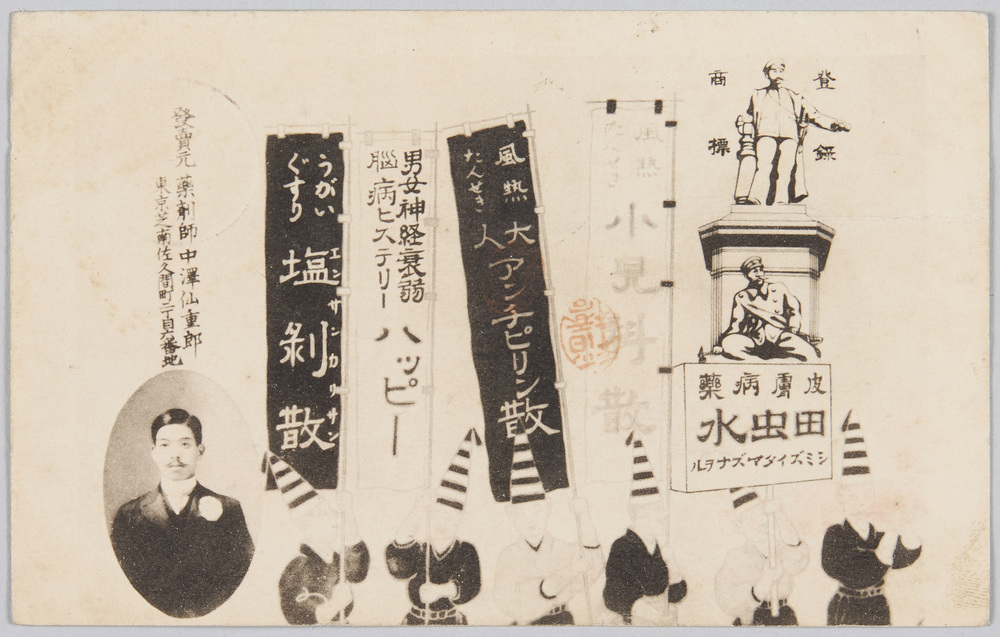 登録
商標
皮膚病藥
田虫水
シミズイタマズナヲル
風熱
たんせき
小児科散
風熱
たんせき
大人
アンチピリン散
男女神経衰弱
脳病ヒステリー
ハッピー
うがい
ぐすり
塩剝散
エンサンカリサン
發賣元 藥剤師 中澤仙重郎
東京芝南佐久間町二丁目六番地